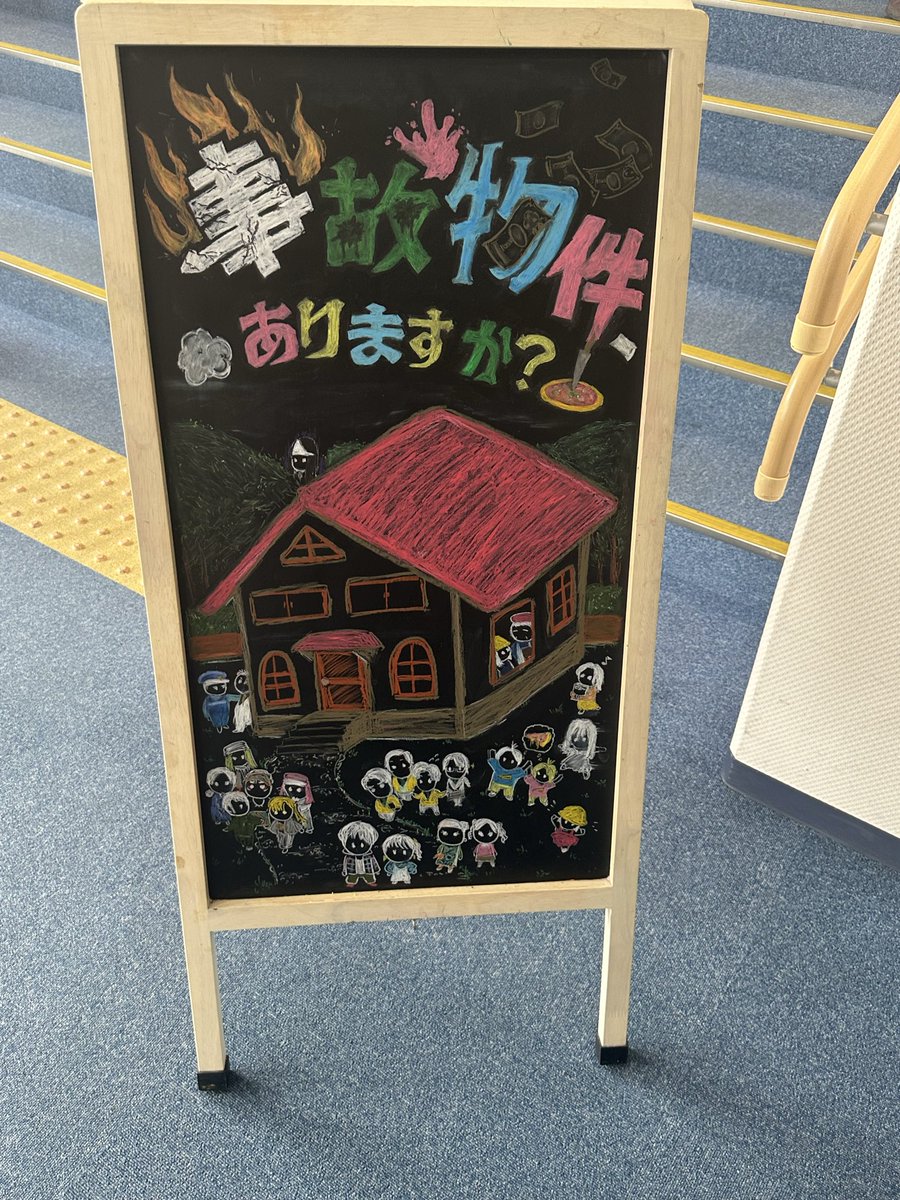 事故物件、
ありますか?